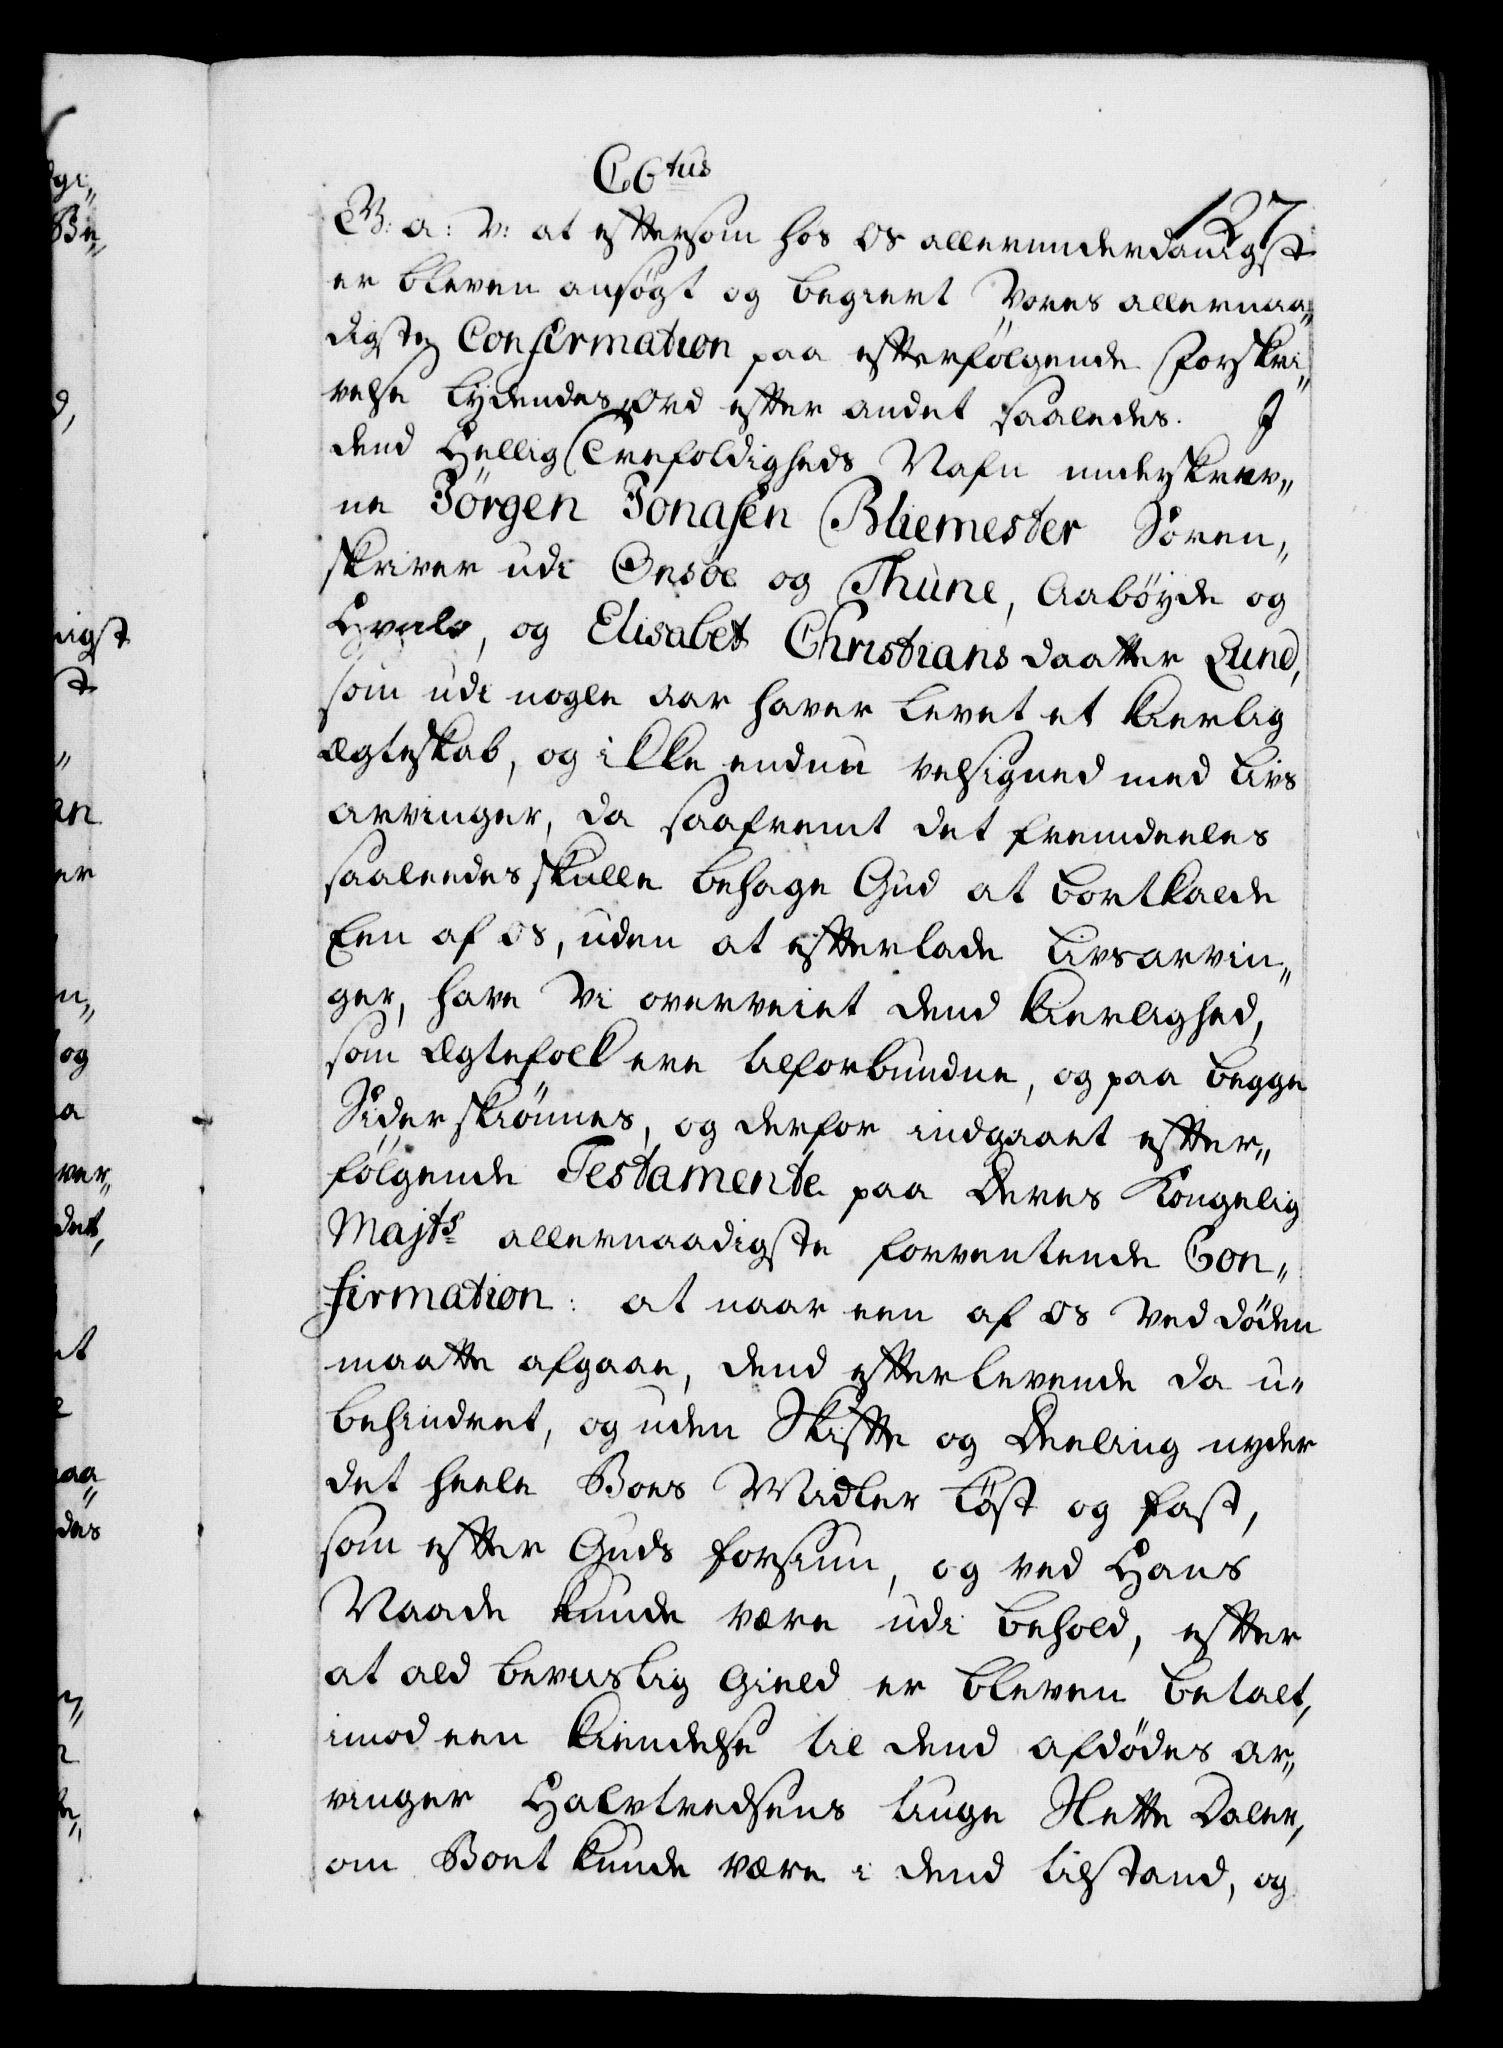 C6tus
127
G: a: V: at eftersom hos os allerunderdanigst
er bleven ansøgt og begiert Vores allernaa„
digste Confirmation paa efterfølgende Forskri„
velse lydendes Ord efter andet saaledes. I
dend Hellig Trefoldigheds Nafn underskrev„
ne Jörgen Jonasen Bliemester Soren„
skriver udi Onsöe og Thune, Aabøyde og
Hvals, og Elisabet Christians daatter Lund,
som udi nogle aar haver levet et kierlig
Ægteskab, og ikke endnu velsigned med Livs
arvinger, da saafremt det fremdeeles
saaleedes skulle behage Gud at bortkalde
Een af os, uden at efterlade Livsarvin„
ger, have Vi overveiet dend kierlighed,
som Ægtefolk ere tilforbundne, og paa begge
Sider skiønnes, og derfor indgaaet efter„
følgende Testamente paa Deres Kongelig
Majts allernaadigste forventende Con„
firmation: at naar een af os ved døden
maatte afgaae, dend efterlevende da u„
behindret, og uden Skifte og Deeling nyder
det heele Boes Midler løst og fast,
som efter Guds forsiun, og ved Hans
Naade kunde være udi behold, efter
at ald bevislig Gield er bleven betalt,
imod een kiendelse til dend afdødes ar„
vinger Halvtredsens tiuge Slette Daler,
om Boet kunde være i dend tilstand, og